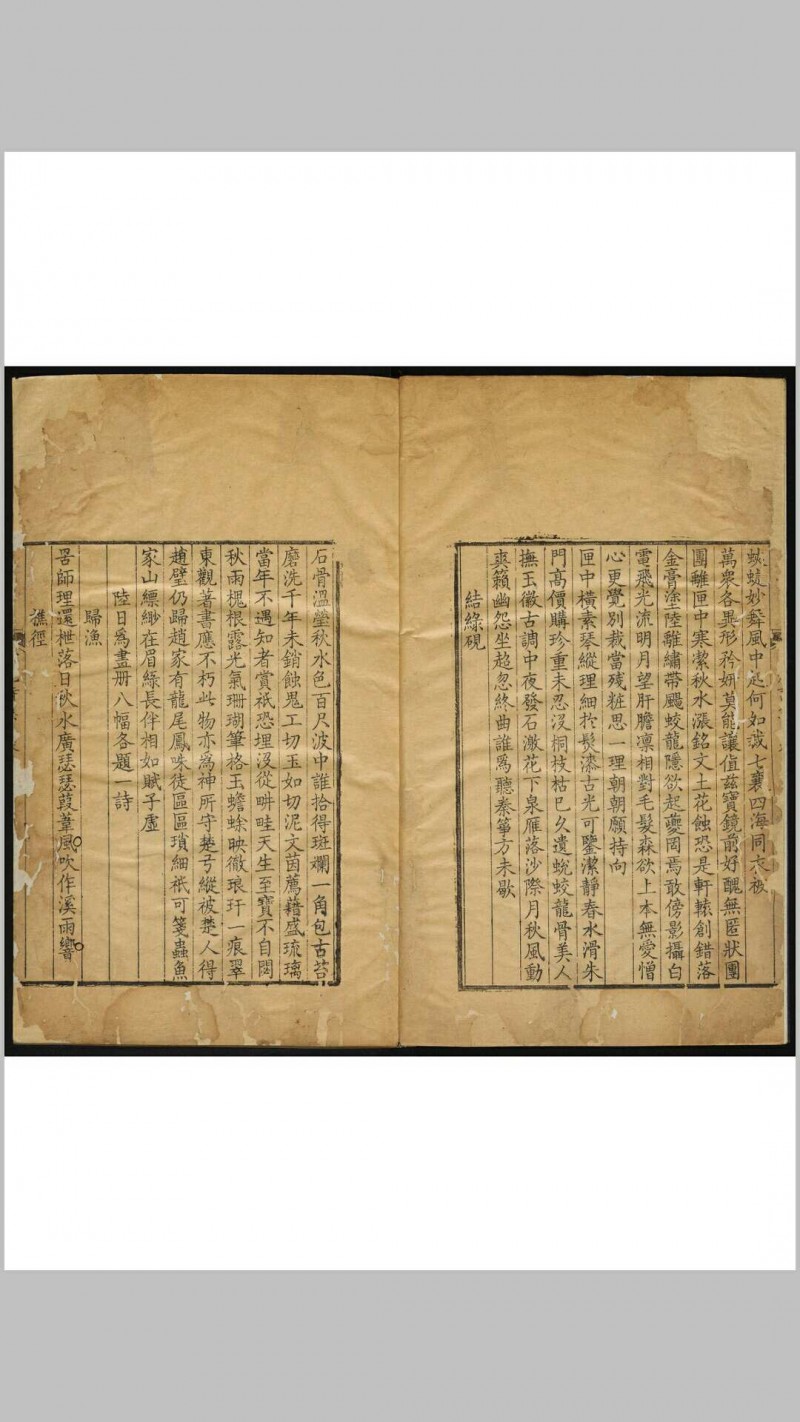 蜿蜒妙舞風中起何如誠七襄四海同衣被
萬衆各異形矜妍莫能讓值兹寶鏡前好醜無匿狀團
團離匣中寒潔秋水漲銘文土花蝕恐是軒轅創錯落
金膏塗陸離繡帶颺蛟龍隱欲起夔罔焉敢傍影攝白
電飛光流明月望肝膽凛相對毛髮森欲上本無愛憎
心更覺別裁當残粧思一理朝朝願持向
匣中橫素琴縱理細扵髮漆古光可鑒潔靜春水滑朱
門高價購珍重未忍没桐枝枯已久遺蛻蛟龍骨美人
撫玉徽古調中夜發石激花下泉雁落沙際月秋風動
爽籟幽怨坐超忽終曲誰爲聽秦箏方未歇
結綠硯
石骨溫瑩秋水色百尺波中誰拾得斑斕一角包古苔
磨洗千年未銷蝕鬼工切玉如切泥文茵薦藉盛琉璃
當年不遇知者賞祇恐埋没從畊畦天生至寶不自閟
秋雨槐根露光氣珊瑚筆格玉蟾蜍映徹琅玕一痕翠
東觀著書應不朽此物亦爲神所守楚弓縱被楚人得
趙璧仍歸趙家有龍尾鳳咮徒區區瑣細祇可箋蟲魚
家山縹緲在眉綠長伴相如賦子虛
陸日爲畫册八幅各題一詩
歸漁
罟師理還枻落日秋水廣瑟瑟葭葦風吹作溪雨響
樵徑